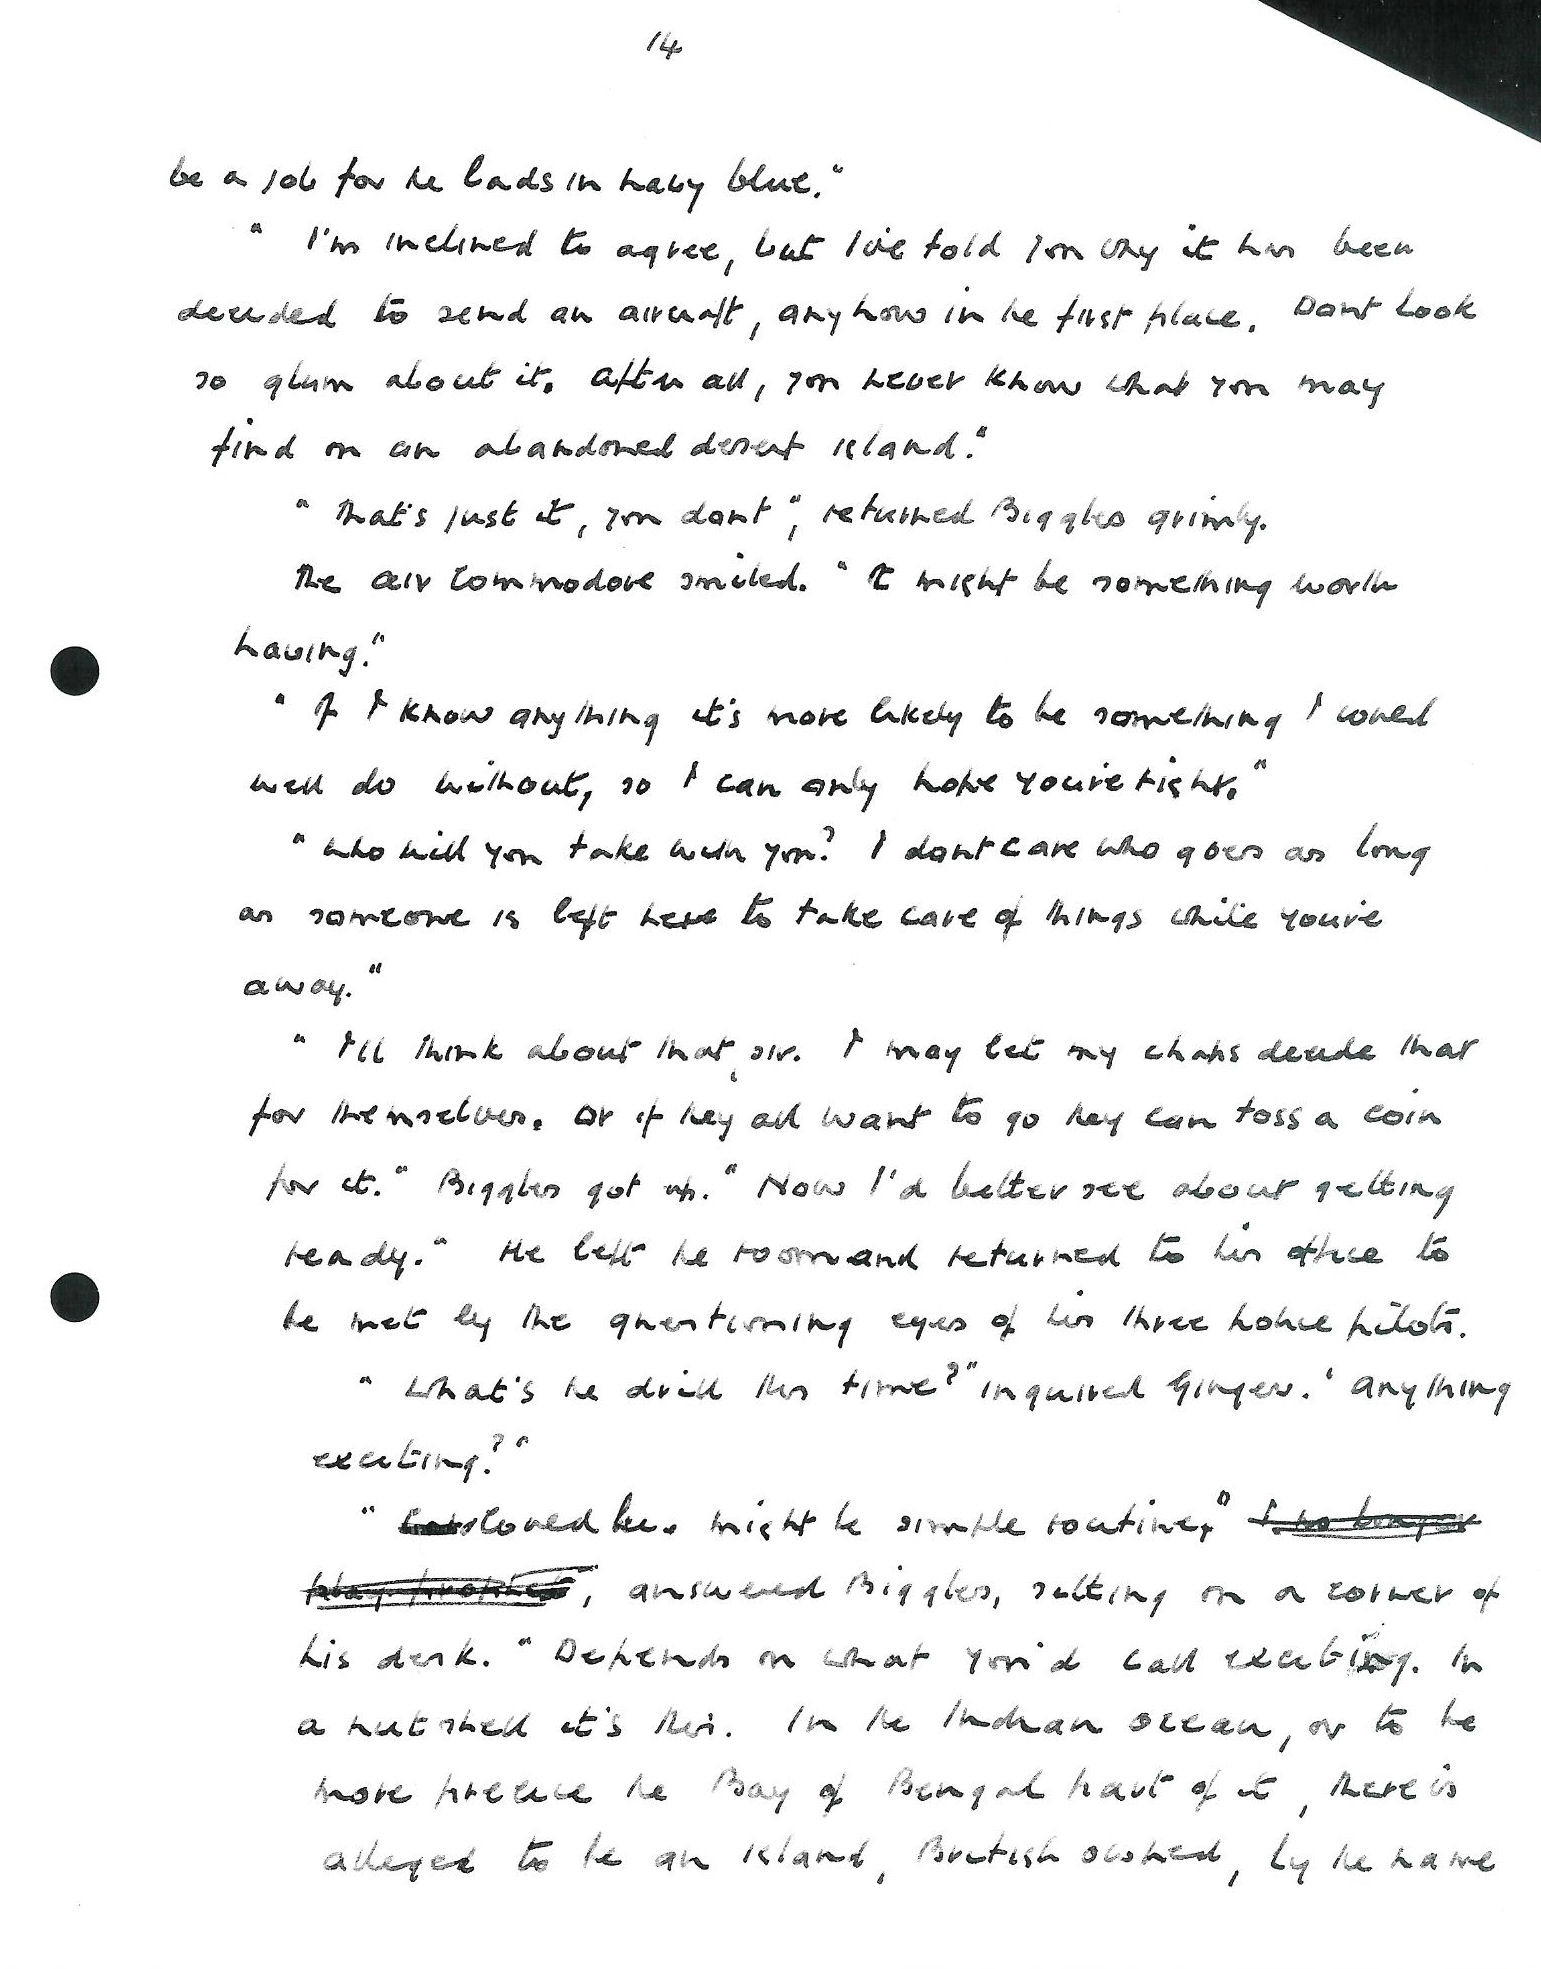 14
be a job for he lads in navy blue."
" I'm inclined to agree, but I've told you why it has been
decided to send an aircraft, anyhow in he first place. Dont look
so glum about it. After all, you never know what you may
find on an abandoned desert island."
" That's just it, you dont", returned Biggles grimly.
The air Commodore smiled. " It might be something worth
having."
" If I know anything it's more likely to be something I could
well do without, so I can only hope you're right."
" Who will you take with you? I dont care who goes as long
as someone is left here to take care of things while you're
away."
" I'll think about that, sir. I may let my chaps decide that
for themselves. Or if hey all want to go hey can toss a coin
for it." Biggles got up. " Now I'd better see about getting
ready." He left he room and returned to his office to
be met by the questioning eyes of his three police pilots.
" What's he drill this time?" inquired Ginger. ' Anything
exciting?"
" Could be. might be simple routine," I no longer
play prophet, answered Biggles, sitting on a corner of
his desk. " Depends on what you'd call exciting. In
a nut shell it's this. In he Indian ocean, or to be
more precise he Bay of Bengal part of it, there is
alleged to be an island, British owned, by he name